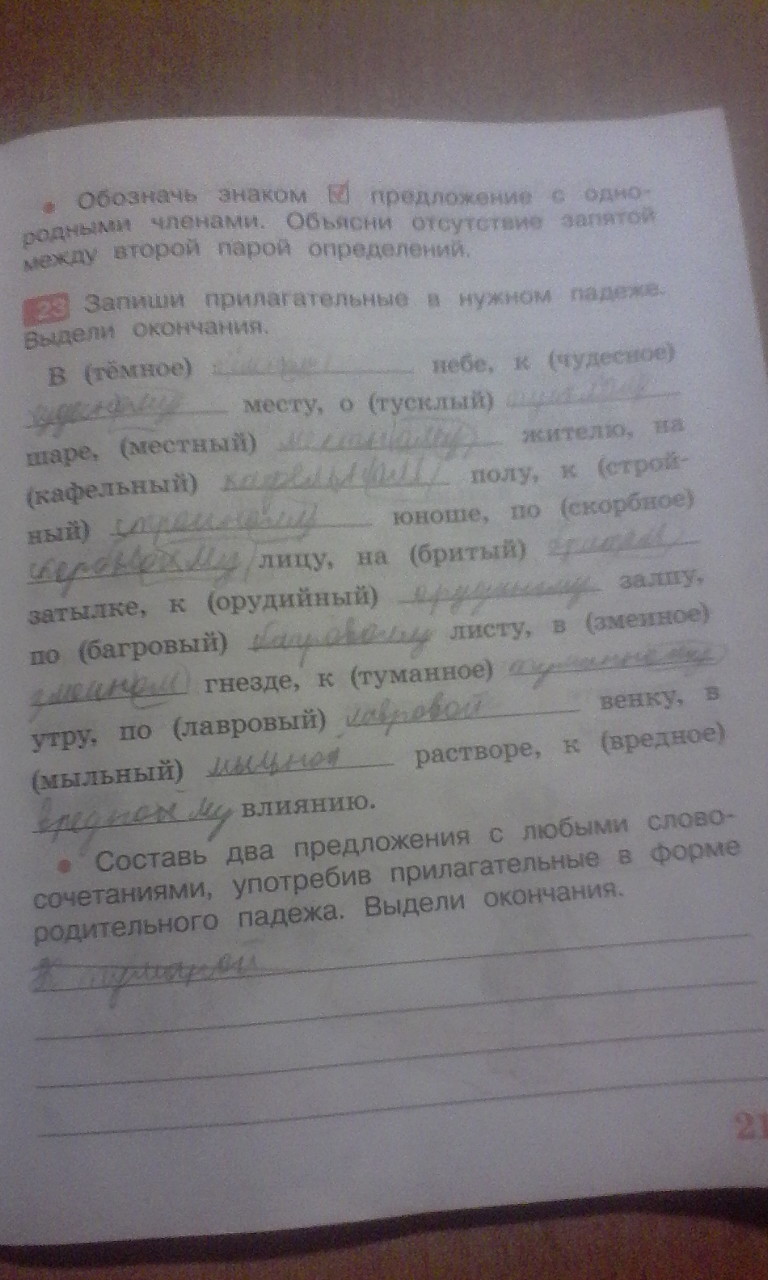 • Обозначь знаком ☑ предложение с одно-
родными членами. Объясни отсутствие запятой
между второй парой определений.
23 Запиши прилагательные в нужном падеже.
Выдели окончания.
В (тёмное) небе, к (чудесное)
чудесному месту, о (тусклый)
шаре, (местный) местному жителю, на
(кафельный) кафельном полу, к (строй-
ный) стройному юноше, по (скорбное)
лицу, на (бритый) бритом
затылке, к (орудийный) залпу,
по (багровый) багровому листу, в (змеиное)
змеином гнезде, к (туманное) туманному
утру, по (лавровый) лавровой венку, в
(мыльный) мыльной растворе, к (вредное)
вредному влиянию.
• Составь два предложения с любыми слово-
сочетаниями, употребив прилагательные в форме
родительного падежа. Выдели окончания.
21